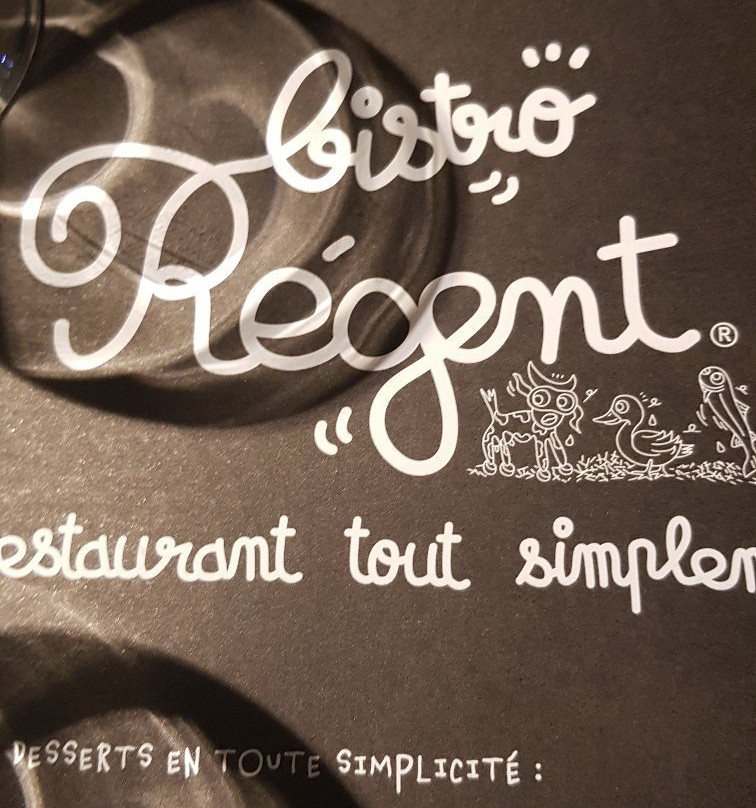 bistro
Régent®
estaurant tout simplem
DESSERTS EN TOUTE SIMPLICITÉ :